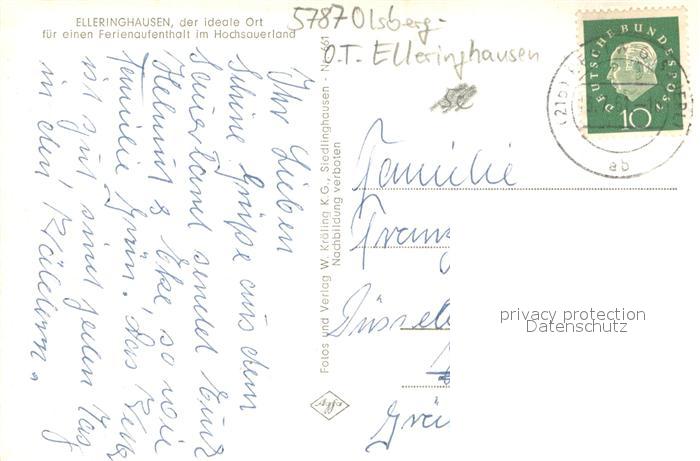 ELLERINGHAUSEN, der ideale Ort
für einen Ferienaufenthalt im Hochsauerland
5787 Olsberg-
O.T. Elleringhausen
Ihr Lieben
Schöne Grüße aus dem
Sauerland sendet Euch
Helmut & Elke so wie
Familie Grün. Das
ist gut sind jeden Tag
in den Wäldern.
Fotos und Verlag W. Kröling K.G., Siedlinghausen - Nr. 661
Nachbildung verboten
DEUTSCHE BUNDESPOST
10
(21b)
ab
Familie
Franz
Düssel
Grä
privacy protection
Datenschutz